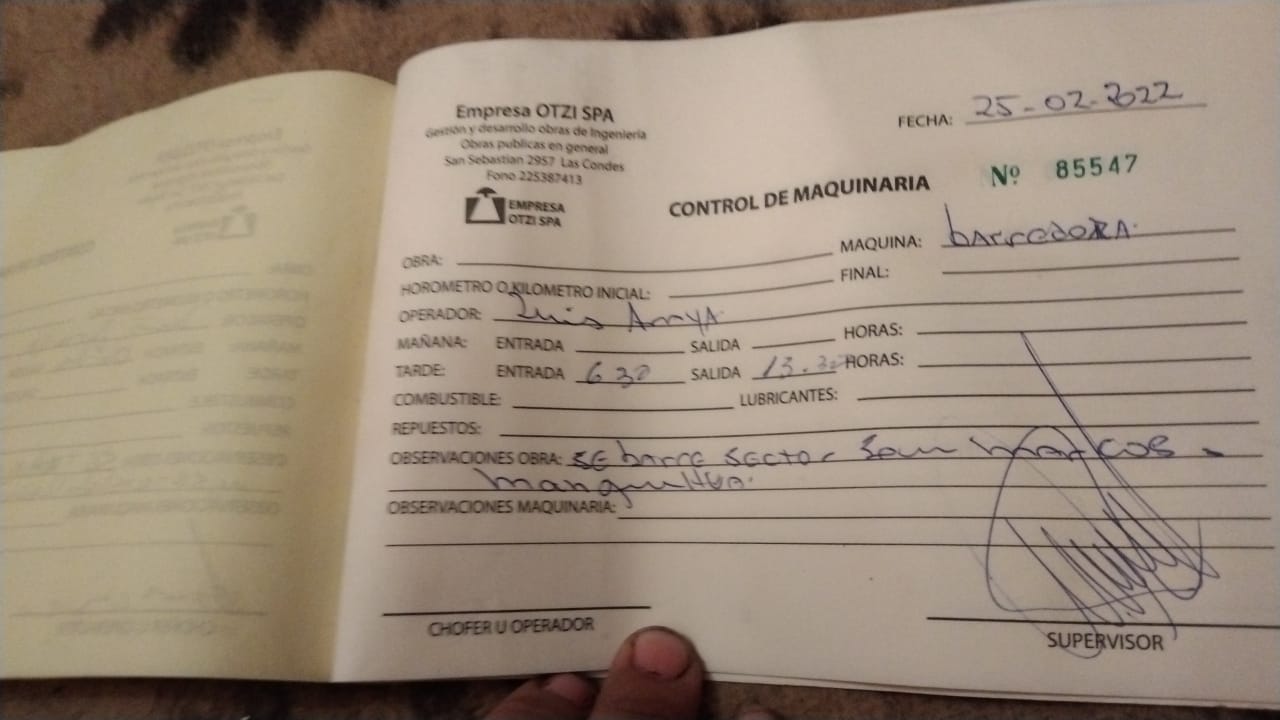 Empresa OTZI SPA
Gestión y desarrollo obras de Ingeniería
Obras publicas en general
San Sebastian 2957 Las Condes
Fono 225387413
EMPRESA
OTZI SPA
FECHA: 25-02-2022
Nº 85547
CONTROL DE MAQUINARIA
OBRA: MAQUINA: barredora
HOROMETRO O KILOMETRO INICIAL: FINAL:
OPERADOR: Luis Araya
MAÑANA: ENTRADA SALIDA HORAS:
TARDE: ENTRADA 6 30 SALIDA 13.30 HORAS:
COMBUSTIBLE: LUBRICANTES:
REPUESTOS:
OBSERVACIONES OBRA: se barre sector San Marcos -
OBSERVACIONES MAQUINARIA:
CHOFER U OPERADOR
SUPERVISOR